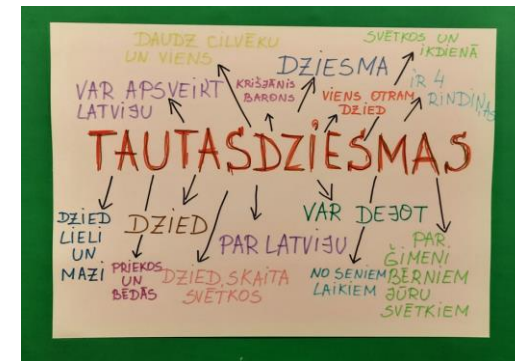 DAUDZ CILVĒKU
UN VIENS
SVĒTKOS UN
IKDIENĀ
DZIESMA
VAR APSVEIKT
LATVIJU
KRIŠJĀNIS
BARONS
VIENS OTRAM
DZIED
IR 4
RINDIŅAS
TAUTASDZIESMAS
DZIED
LIELI
UN
MAZI
DZIED
VAR DEJOT
PRIEKOS
UN
BĒDĀS
DZIED, SKAITA
SVĒTKOS
PAR LATVIJU
NO SENIEM
LAIKIEM
PAR
ĢIMENI
BĒRNIEM
JŪRU
SVĒTKIEM